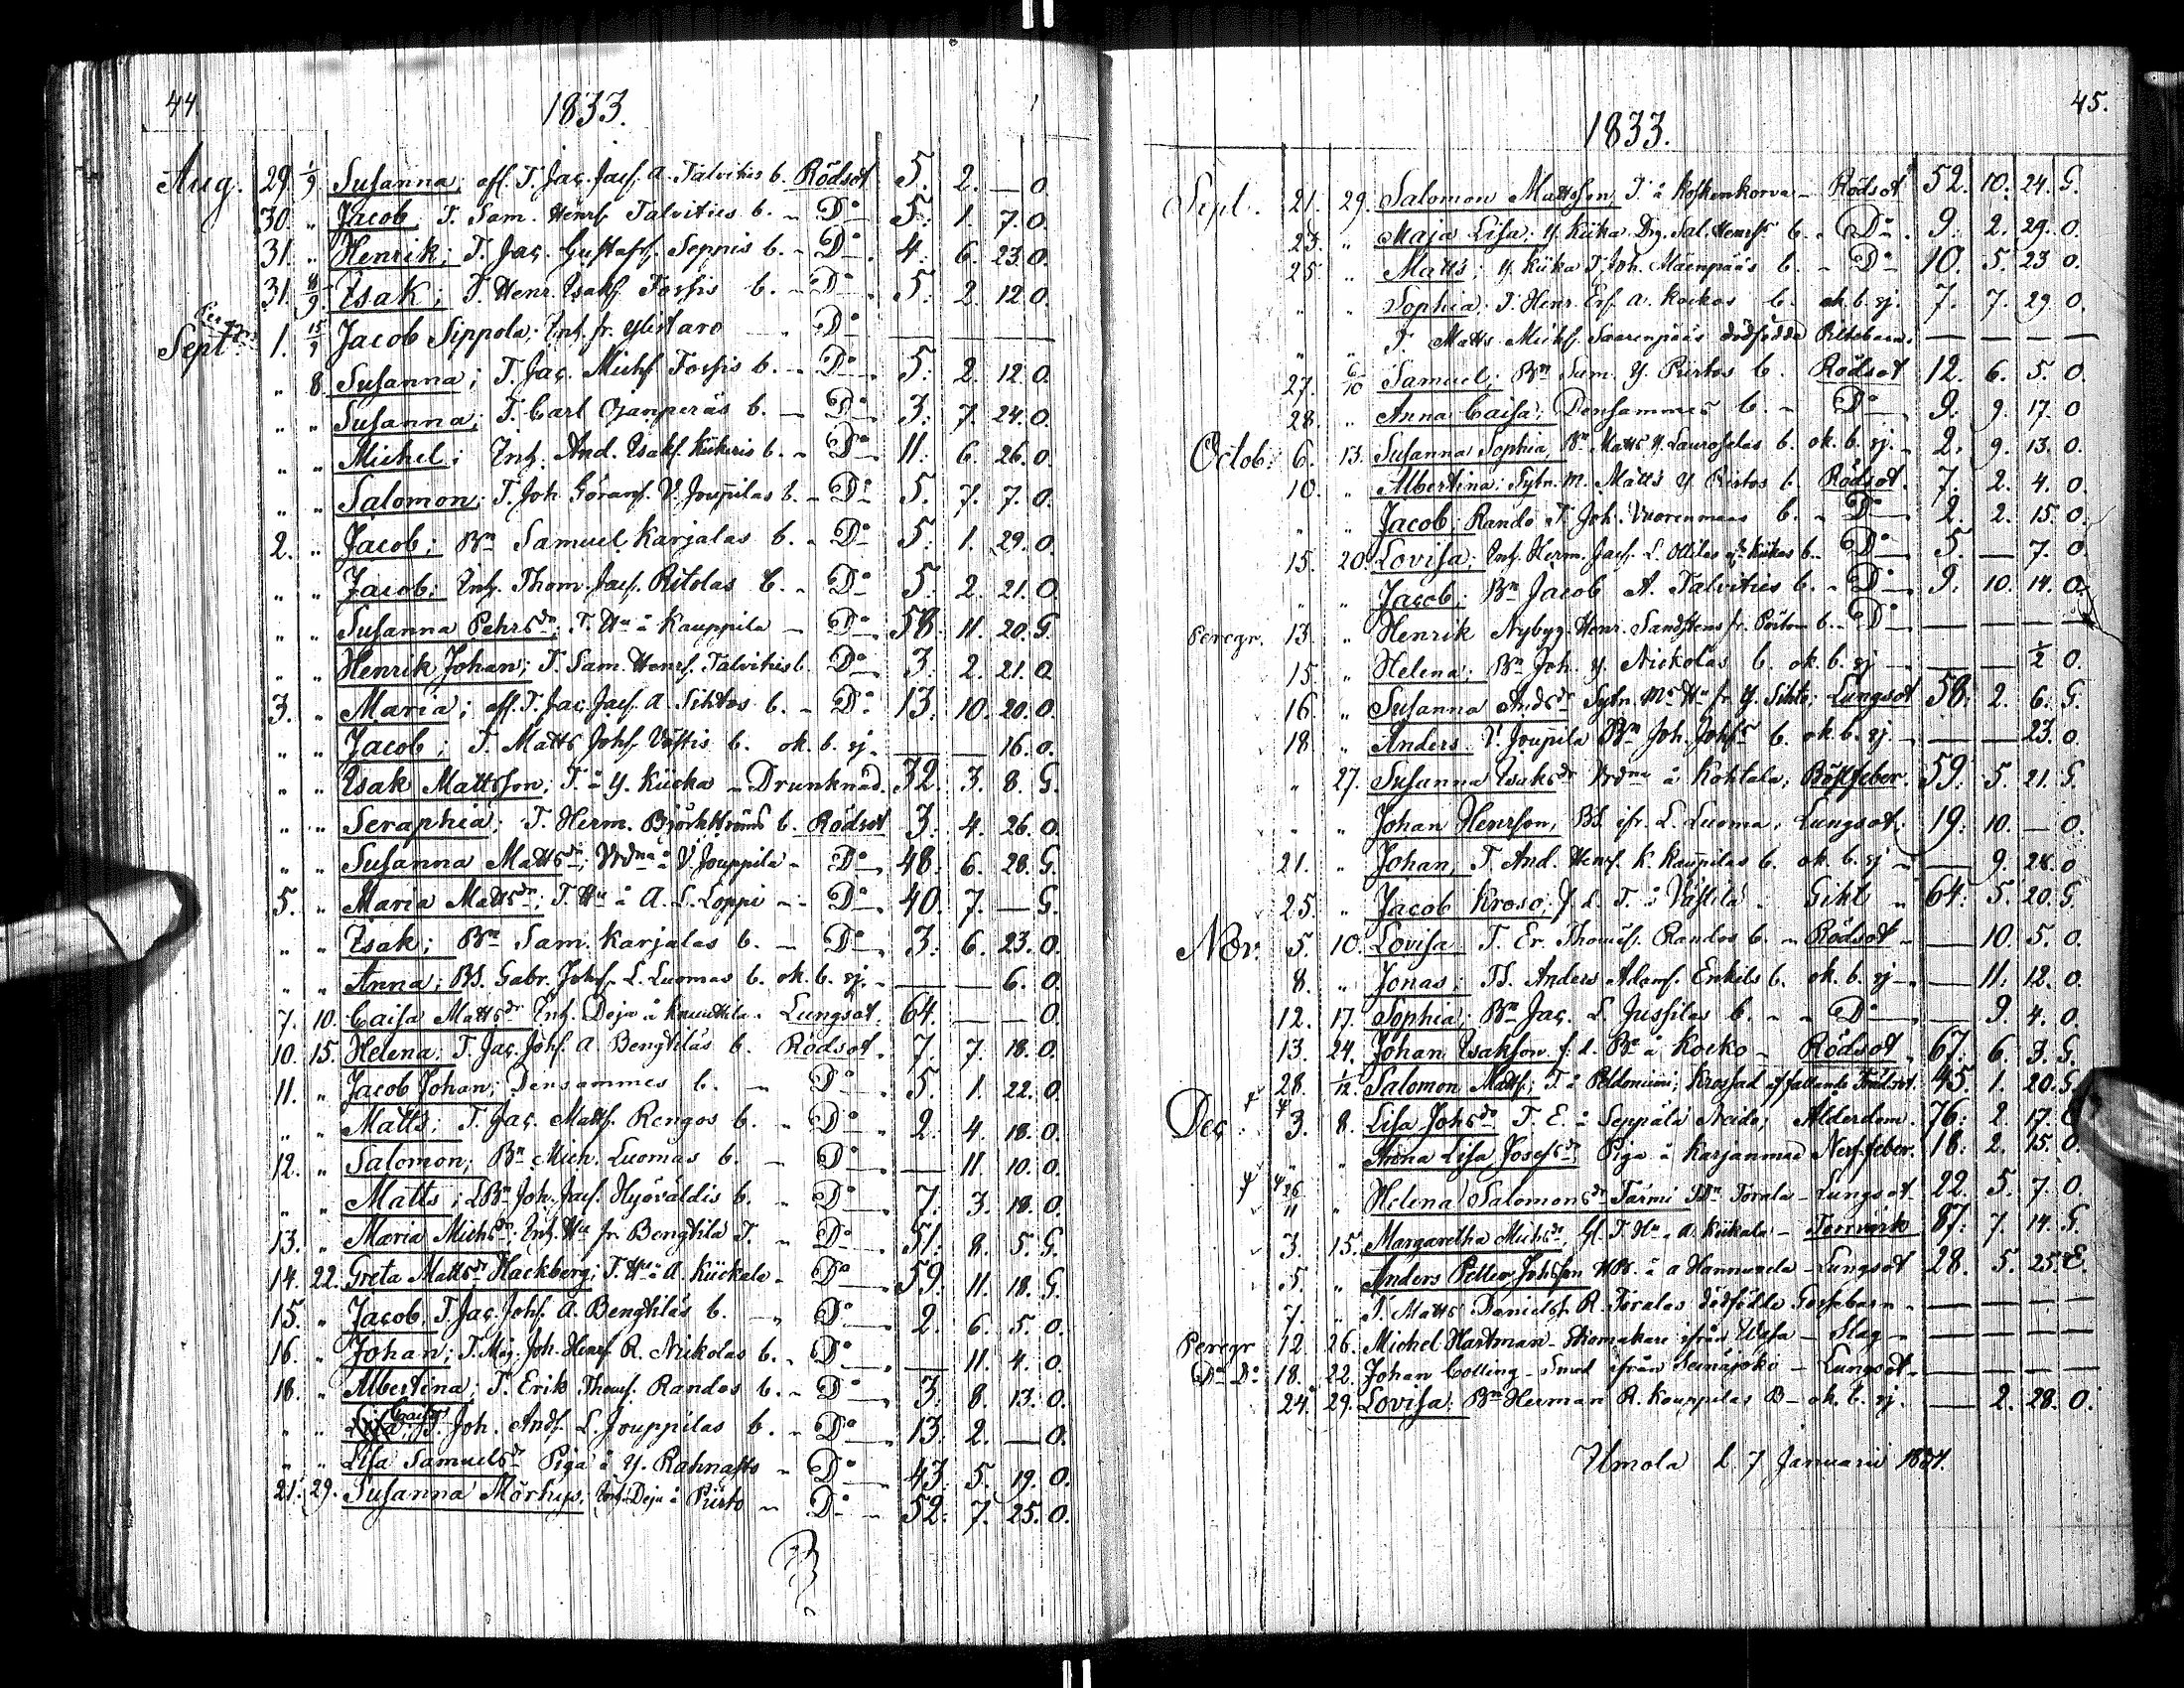 44.
1833.
Aug. 29. 1/9 Susanna; afl. T. Jac. Jacs. A. Talvities b. Rödsot 5. 2. — O.
30. " Jacob T. Sam. Henrs. Talvities b. - Do 5. 1. 7. O.
31. " Henrik; T. Jac. Gustafs. Seppis b. - Do 4. 6. 23. O.
31. 8/9 Isak; T. Henr. Isaks. Fossis b. - Do 5. 2. 12. O.
Peregr. Sept. 1. 15/9 Jacob Sippola; Inh. fr. Ylistaro - Do — — —
" 8. Susanna; T. Jac. Michs. Fossis b. - Do 5. 2. 12. O.
" " Susanna; T. Carl Ojanperäs b. - Do 3. 7. 24. O.
" " Michel; Inh. And. Isaks. Kiikeris b. - Do 11. 6. 26. O.
" " Salomon; T. Joh. Görans. V. Jouppilas b. - Do 5. 7. 7. O.
2. " Jacob; Bn Samuel Karjalas b. - Do 5. 1. 29. O.
" " Jacob; Inh. Thom. Jacs. Ritolas b. - Do 5. 2. 21. O.
" " Susanna Pehrsdr T. Hu å Kauppila - Do 58. 11. 20. G.
" " Henrik Johan; T. Sam. Henrs. Talvities b. Do 3. 2. 21. O.
3. " Maria; afl. T. Jac. Jacs. A. Sihtos b. - Do 13. 10. 20. O.
" " Jacob; T. Matts Johs. b. ok. b. sj. — — 16. O.
" " Isak Mattsson; T. å Y. Kiicka - Drunknad. 32. 3. 8. G.
" " Seraphia; T. Herm. Björkströms b. Rödsot 3. 4. 26. O.
" " Susanna Mattsdr; å V. Jouppila - Do 48. 6. 28. G.
5. " Maria Mattsdr; T. Hu å A. L. Loppi - Do 40. 7. — G.
" " Isak; Bn Sam. Karjalas b. - Do 3. 6. 23. O.
" " Anna; BS. Gabr. Johs. L. Luomas b. ok. b. sj. — — 6. O.
7. 10. Caisa Mattsdr Inh. Deja å Lungsot. 64. — — O.
10. 15. Helena; T. Jac. Johs. A. Bengtiläs b. Rödsot. 7. 7. 18. O.
11. " Jacob Johan; Densammes b. - Do 5. 1. 22. O.
" " Matts; T. Jac. Matts. Rengos b. - Do 2. 4. 18. O.
12. " Salomon; Bn Mich. Luomas b. - Do — 11. 10. O.
" " Matts; LBn Joh. Jacs. Hyöväldis b. " Do 7. 3. 18. O.
13. " Maria Michsdr; Inh. Hu fr. Bengtilä T. " Do 51. 8. 5. G.
14. 22. Greta Mattsdr Hackberg; T. Hu å A. Kiickala - Do 59. 11. 18. G.
15. " Jacob. T. Jac. Johs. A. Bengtiläs b. - Do 2. 6. 5. O.
16. " Johan; T. Måg Joh. Henrs. R. Nikolas b. - Do — 11. 4. O.
18. " Albertina; T. Erik Thoms. Randos b. - Do 3. 8. 13. O.
" " Caisa T. Joh. Ands. L. Jouppilas b. - Do 13. 2. — O.
" " Lisa Samuelsdr Piga å Y. Rahnasto - Do 43. 5. 19. O.
21. 29. Susanna Mörkys; Inh. Deja å Pirto - Do 52. 7. 25. O.
45.
1833.
Sept. 21. 29. Salomon Mattsson T. å Koskenkorva - Rödsot 52. 10. 24. G.
23. " Maja Lisa; Y. Kiika Drg. Sal. Henrss b. - Do 9. 2. 29. O.
25. " Matts; Y. Kiika T. Joh. Mäenpääs b. - Do 10. 5. 23. O.
" " Sophia T. Henr. Ers. A. Kockos b. ok. b. sj. 7. 7. 29. O.
" " T. Matts Michs. Saarenpääs dödfödda Piltebarn — — —
27. 6/10 Samuel; Bn Sam. Y. Pirtos b. Rödsot 12. 6. 5. O.
28. " Anna Caisa; Densammes b. - Do 9. 9. 17. O.
Octob. 6. 13. Susanna Sophia; Bn Matts Y. Lauroselas b. ok. b. sj. 2. 9. 13. O.
10. " Albertina; Sytn. M. Matts Y. Pirtos b. Rödsot. 7. 2. 4. O.
" " Jacob; Rando T. Joh. Vuorenmaas b. - Do 2. 2. 15. O.
15. 20. Lovisa; Inh. Herm. Jacs. L. Ollilas Kiikas b. Do 5. — 7. O.
" " Jacob; Bn Jacob A. Talvities b. - Do 9. 10. 14. O.
Peregr. 13. " Henrik Nybyg. Henr. Sandstens fr. Pörtom b. - Do — — —
15. " Helena; Bn Joh. Y. Nickolas b. ok. b. sj — — 1/2 O.
16. " Susanna Andsdr Sytn. Ms Hu fr. Y. Sihto; Lungsot 58. 2. 6. G.
18. " Anders V. Jouppila Bn Joh. Johss b. ok. b. sj. — — 23. O.
" 27. Susanna Isaksdr å Kohtala; Bröstfeber. 59. 5. 21. G.
" " Johan Henrsson; BS. ifr. L. Luoma; Lungsot; 19. 10. — O.
21. " Johan; T. And. Henrs. K. Kauppilas b. ok. b. sj — 9. 28. O.
25. " Jacob Kroso; f. d. T. å - Gikt " 64. 5. 20. G.
Nov. 5. 10. Lovisa; T. Er. Thoms. Randos b. - Rödsot — 10. 5. O.
8. " Jonas; TS. Anders Adams. Enkels b. ok. b. sj - — 11. 12. O.
12. 17. Sophia; Bn Jac. L. Jussilas b. - Do — 9. 4. O.
13. 24. Johan Isaksson f. d. Bn å Kocko - Rödsot 67. 6. 3. G.
28. 1/12 Salomon Matts; T. å Peldoniemi; Krossad af fallande Träd. 45. 1. 20. G.
Dec. 3. 8. Lisa Johsdr T. E. å Seppälä Ålderdom. 76. 2. 17. E.
" " Anna Lisa Josefsdr Piga å Karjanmaa Nerf.feber. 18. 2. 15. O.
" Helena Salomonsdr Törmi Torala - Lungsot 22. 5. 7. O.
3. 15. Margaretha Michsdr; Gl. T. Hu A. Kiikala - Torrvärk 87. 7. 14. G.
5. " Anders Petter Johsson å a Hannuxela - Lungsot 28. 5. 25. E.
7. " T. Matts Daniels. R. Toralas dödfödde Gossebarn — — —
Peregr. 12. 26. Michel Hartman - Skomakare ifrån Wasa - Slag — — —
Do Do 18. 22. Johan Colling - Smed ifrån Seinäjoki - Lungsot — — —
24. 29. Lovisa; Bn Herman R. Kouppilas B - ok. b. sj. — 2. 28. O.
Ilmola d. 7 Januarii 1834.